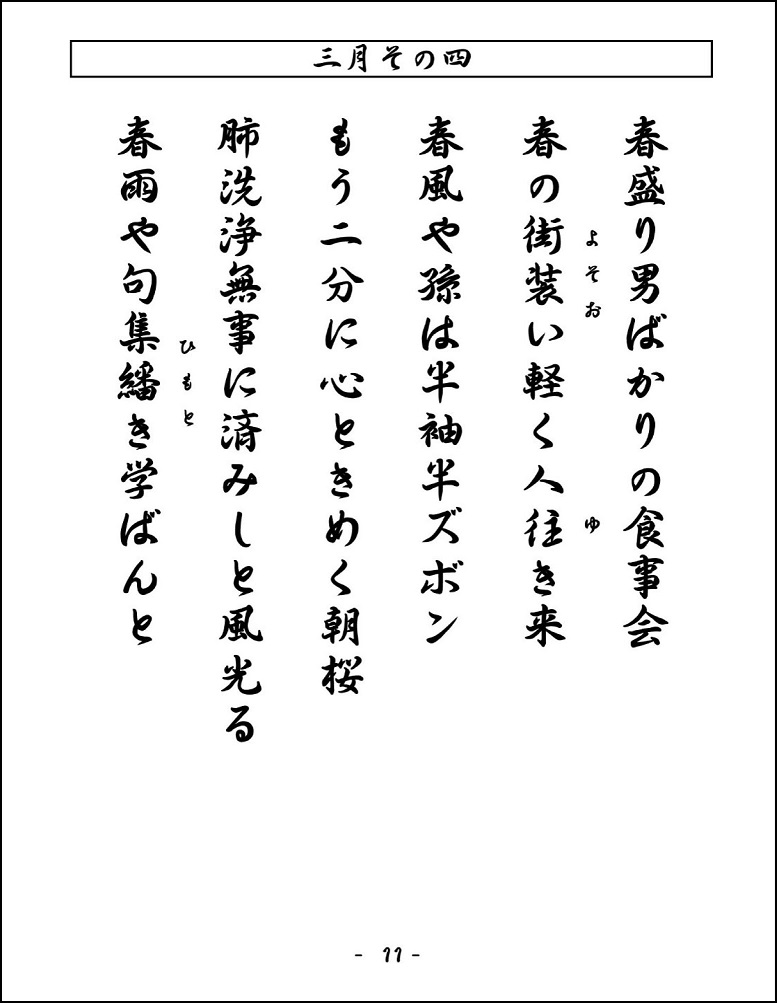 三月その四
春盛り男ばかりの食事会
よそお
ゆ
春の街装い軽く人往き来
春風や孫は半袖半ズボン
もう二分に心ときめく朝桜
肺洗浄無事に済みしと風光る
ひもと
春雨や句集繙き学ばんと
- 11 -